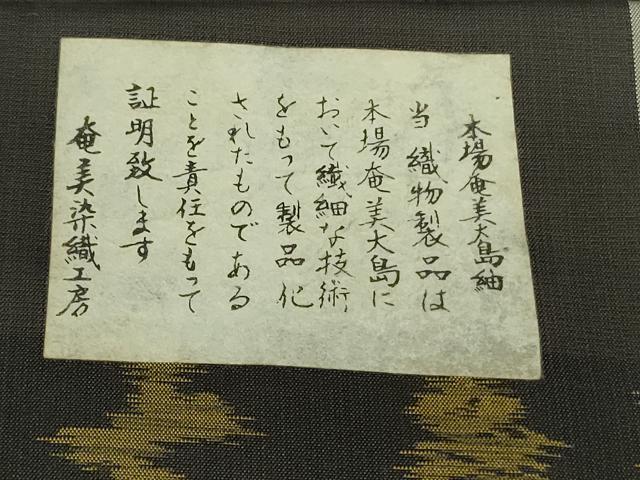 本場奄美大島紬
当織物製品は
本場奄美大島に
おいて繊細な技術
をもって製品化
されたものである
ことを責任をもって
証明致します
奄美染織工房